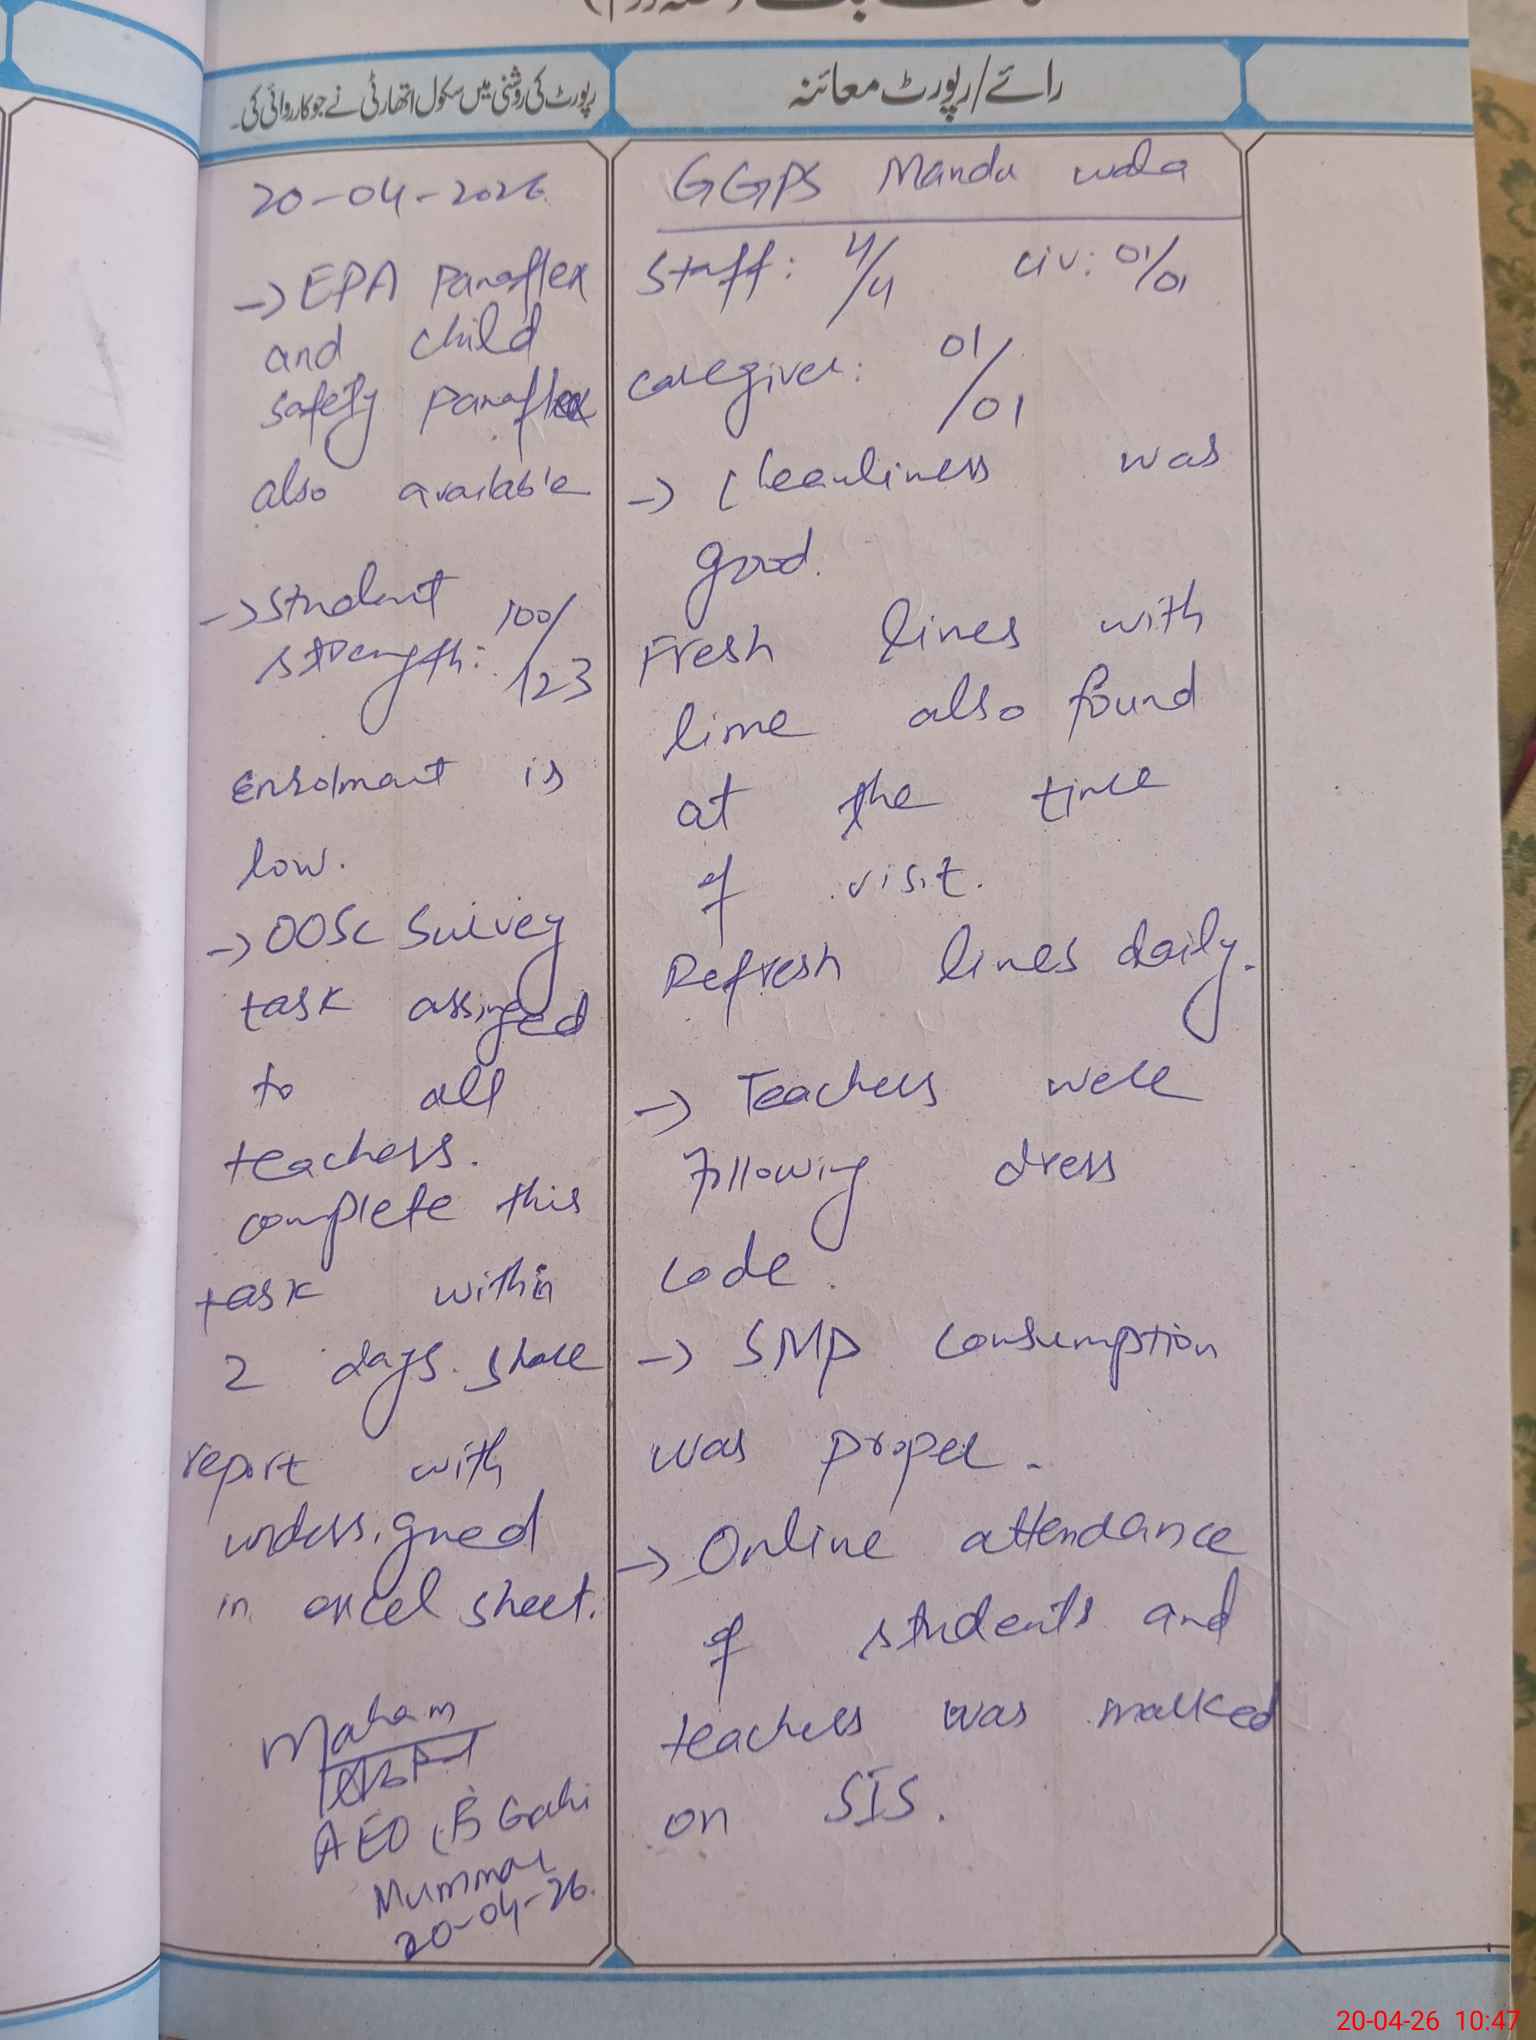 رائے/رپورٹ معائنہ
GGPS Mandu wala
Staff: 4/4 civ: 01/01
caregiver: 01/01
-> Cleanliness was
good.
Fresh lines with
lime also found
at the time
of visit.
Refresh lines daily.
-> Teachers were
following dress
code.
-> SMP Consumption
was proper.
-> Online attendance
of students and
teachers was marked
on SIS.
رپورٹ کی روشنی میں سکول اتھارٹی نے جو کارروائی کی۔
20-04-2026
-> EPA Panaflex
and child
safety Panaflex
also available
-> Student
strength: 100/123
enrolment is
low.
-> OOSC Survey
task assinged
to all
teachers.
complete this
task within
2 days. share
report with
undersigned
in excel sheet.
Maham
AEO
Mummar
20-04-26.
20-04-26 10:47